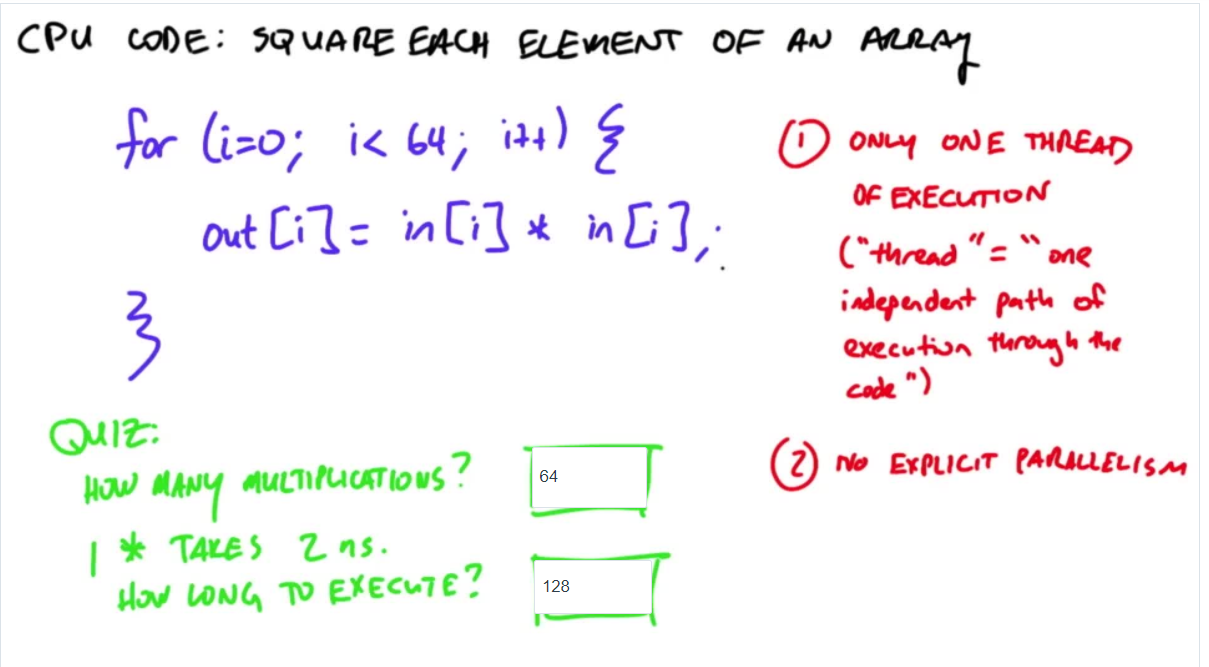 CPU CODE: SQUARE EACH ELEMENT OF AN ARRAY
for (i=0; i< 64; i++) {
out[i] = in[i] * in[i];
}
① ONLY ONE THREAD
OF EXECUTION
("thread" = "one
independent path of
execution through the
code")
② NO EXPLICIT PARALLELISM
QUIZ:
HOW MANY MULTIPLICATIONS?
64
1 * TAKES 2 ns.
HOW LONG TO EXECUTE?
128